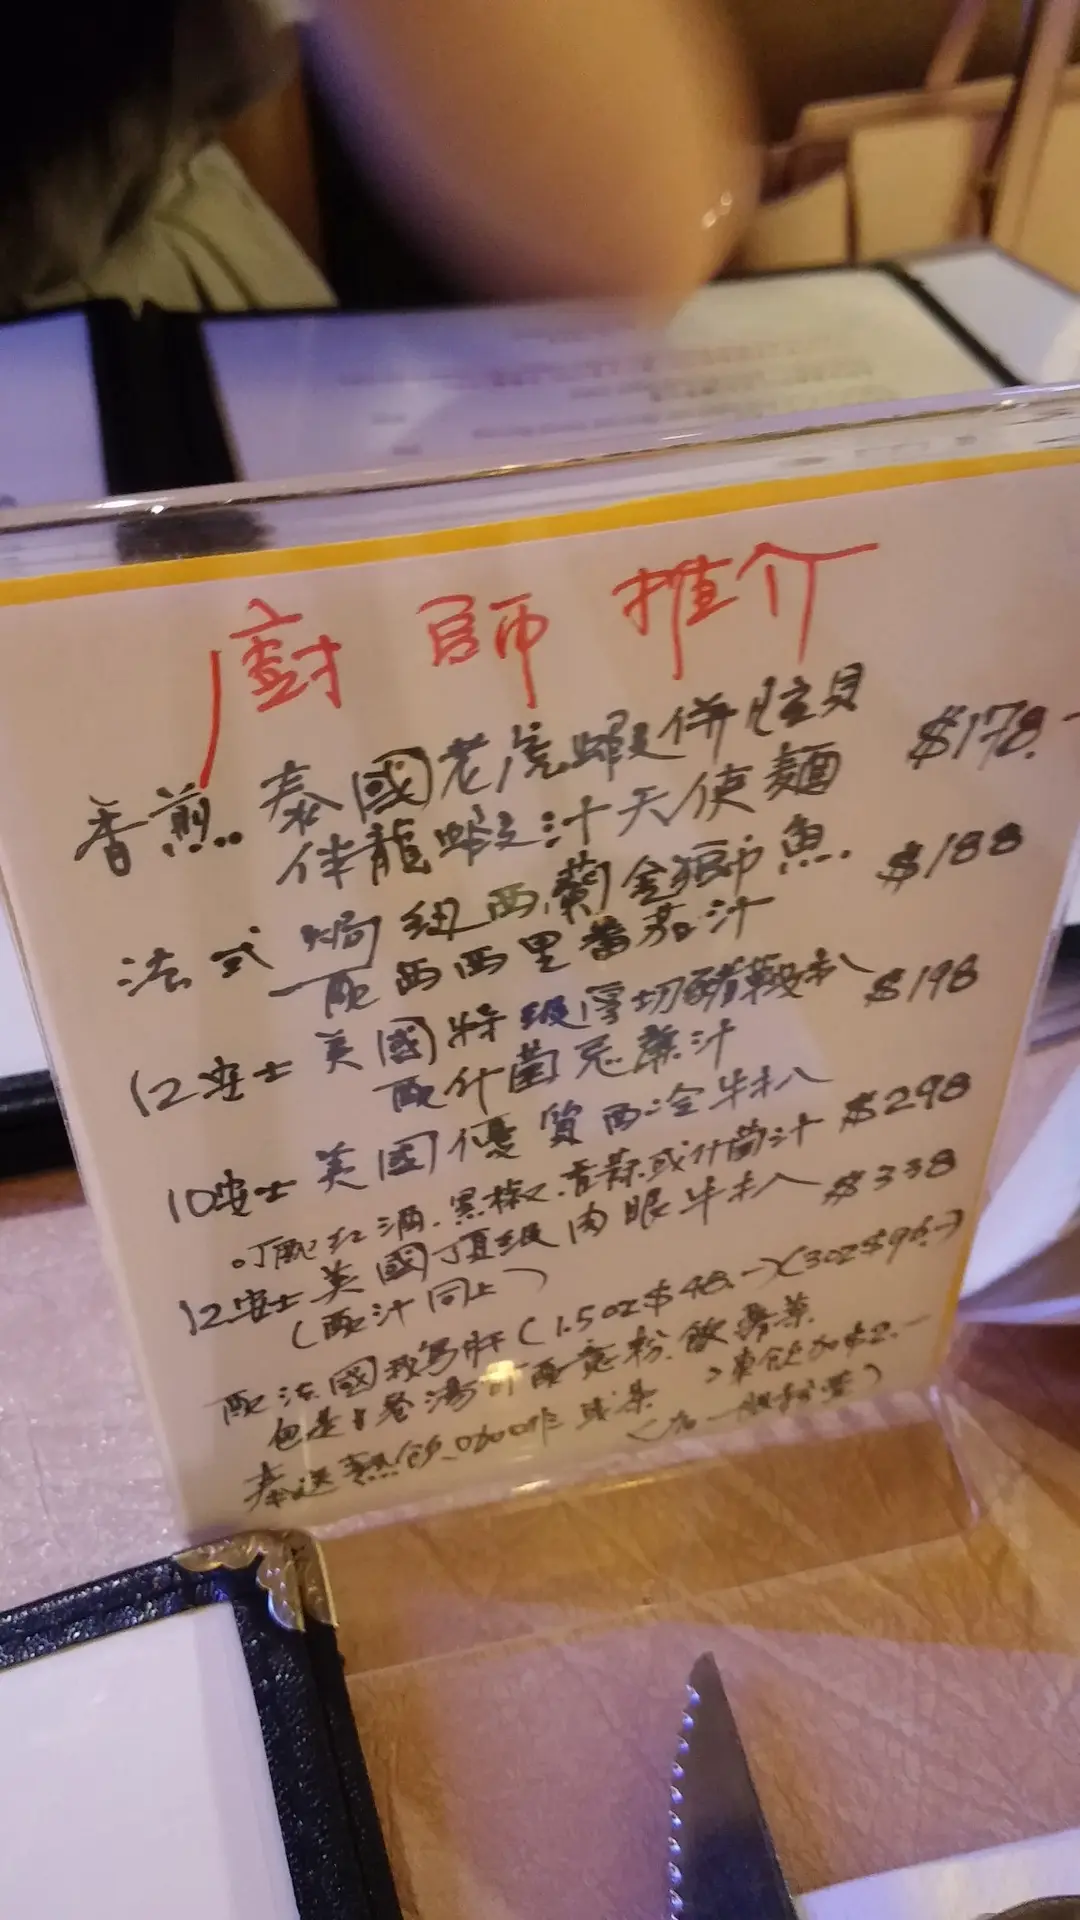 廚師推介
香煎泰國老虎蝦併帶子
伴龍蝦汁天使麵 $178.-
法式焗紐西蘭金獅魚 $188
配西西里番茄汁
12安士美國特級厚切豬鞍扒 $198
配什菌忌廉汁
10安士美國優質西冷牛扒 $298
可配紅酒.黑椒.香蒜或什菌汁
12安士美國頂級肉眼牛扒 $338
(配汁同上)
配法國鵝肝(1.5oz$48.-)(3oz$96.-)
包是日餐湯
奉送熱飲 咖啡或茶 凍飲加$2.-
(加一服務費)